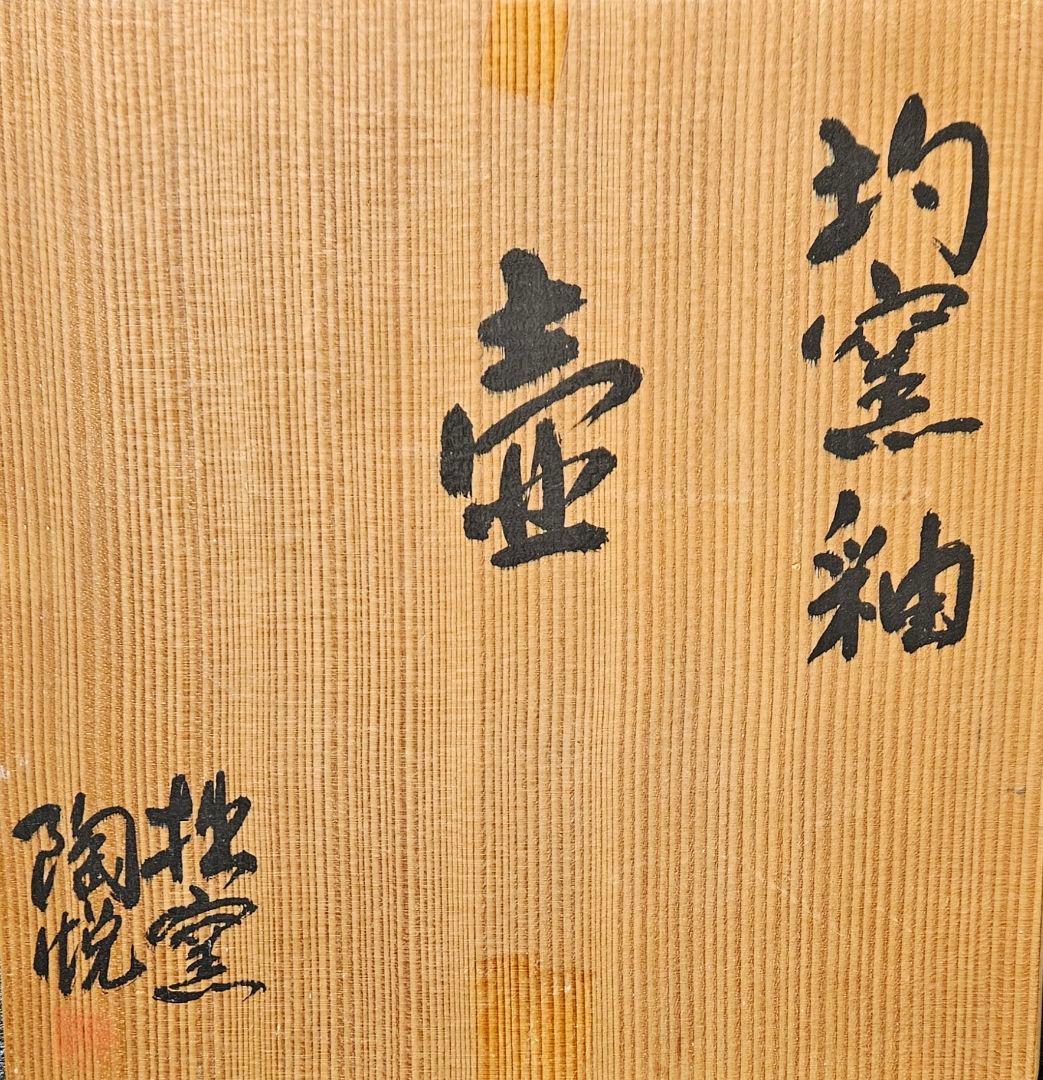 均窯釉
壷
拙窯
陶悦